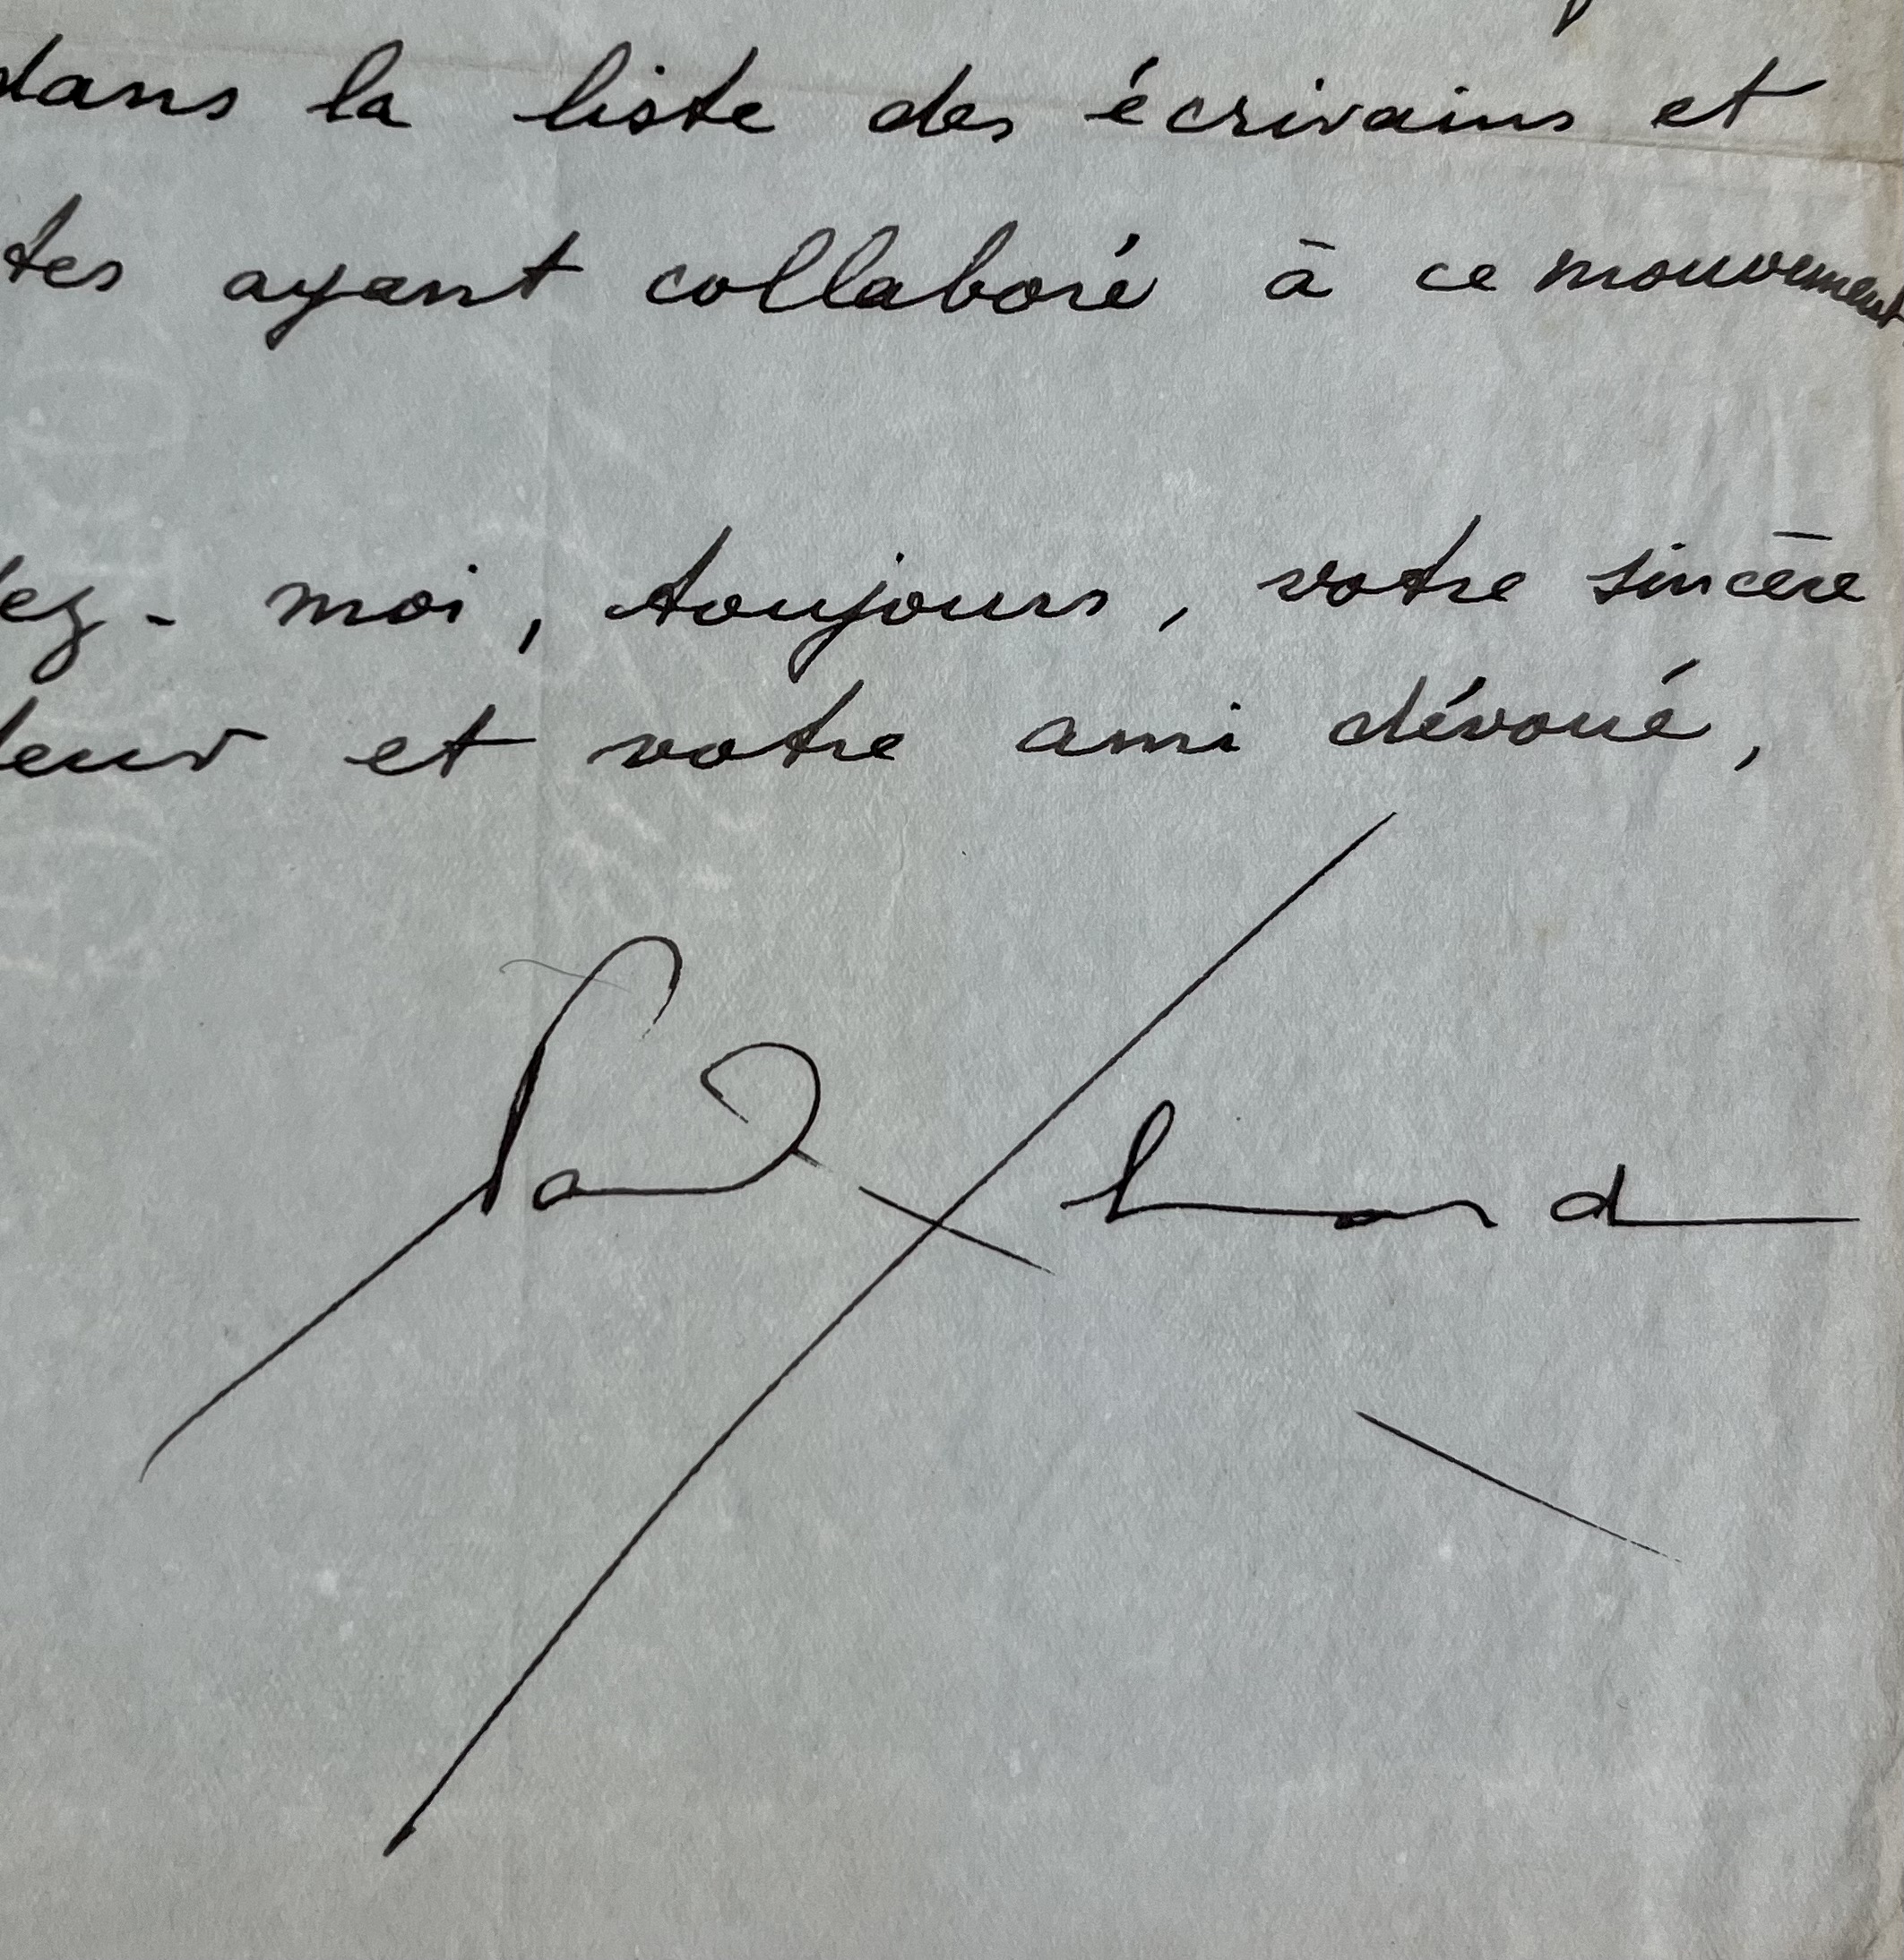 dans la liste des écrivains et
tes ayant collaboré à ce mouvement
ez-moi, toujours, votre sincère
deur et votre ami dévoué,